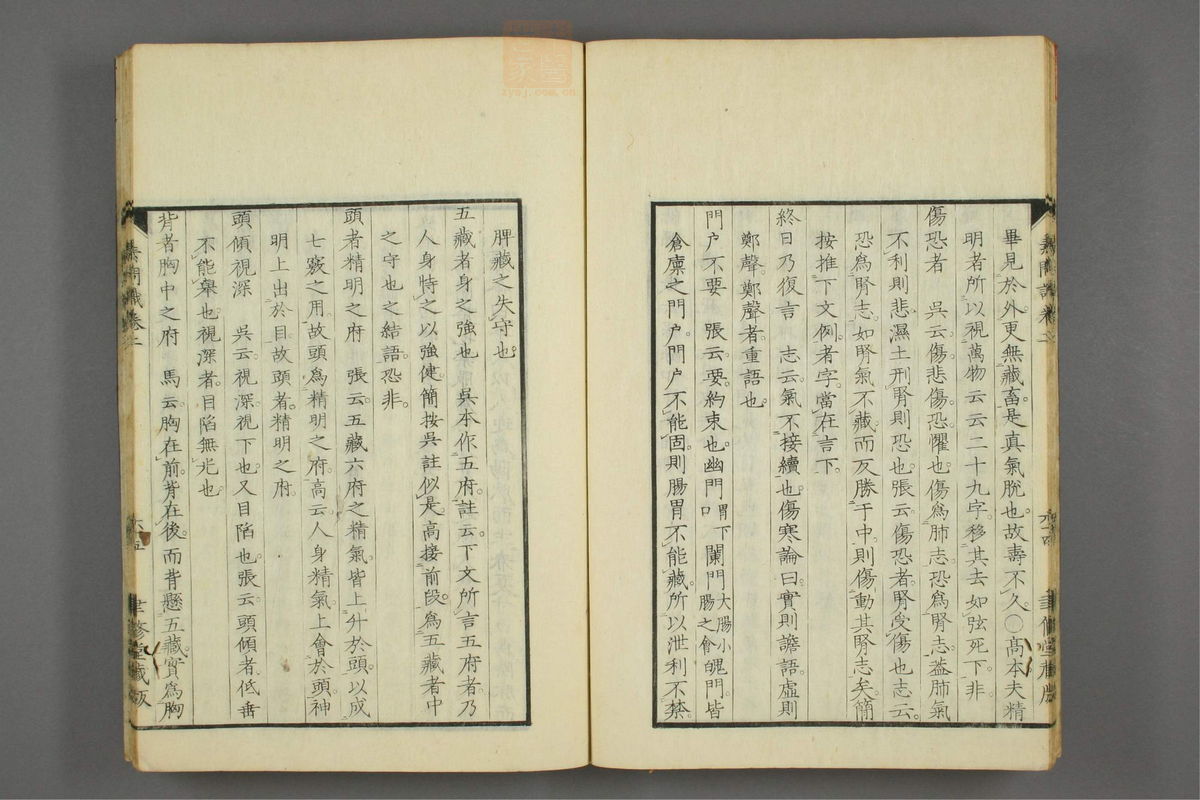 畢見於外。更無藏畜。是真氣脫也。故壽不久。○高本夫精
明者所以視萬物云云二十九字。移其去如弦死下。非
傷恐者　吳云。傷悲傷恐懼也。傷爲肺志。恐爲腎志。蓋肺氣
不利則悲。濕土刑腎則恐也。張云。傷恐者。腎受傷也。志云。
恐爲腎志。如腎氣不藏。而反勝于中。則傷動其腎志矣。簡
按推下文例。者字。當在言下。
終日乃復言　志云。氣不接續也。傷寒論曰。實則譫語。虛則
鄭聲。鄭聲者。重語也
門戶不要　張云。要。約束也。幽門胃下口闌門大腸小腸之會魄門。皆
倉廩之門戶。門戶不能固。則腸胃不能藏。所以泄利不禁。
脾藏之失守也。
五藏者身之強也　吳本作五府。註云。下文所言五府者。乃
人身恃之以強健。簡按吳註似是。高接前段。爲五藏者中
之守也之結語。恐非。
頭者精明之府　張云。五藏六府之精氣。皆上升於頭。以成
七竅之用。故頭爲精明之府。高云。人身精氣。上會於頭。神
明上出於目。故頭者精明之府。
頭傾視深　吳云。視深。視下也。又目陷也。張云。頭傾者。低垂
不能舉也。視深者。目陷無光也
背者胸中之府　馬云。胸在前。背在後。而背懸五藏。實爲胸
素問識卷二
六十五
聿修堂藏版
zysj.com.cn